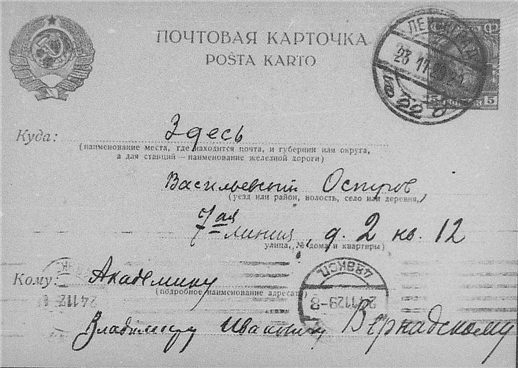 ПОЧТОВАЯ КАРТОЧКА
POŜTA KARTO
Куда: Здесь
(наименование места, где находится почта, и губернии или округа,
а для станций—наименование железной дороги)
Васильевский Остров,
(уезд или район, волость, село или деревня,
7ая линия, д. 2 кв. 12
улица, № дома и квартиры)
Кому: Академику
(подробное наименование адресата)
Владимиру Ивановичу Вернадскому